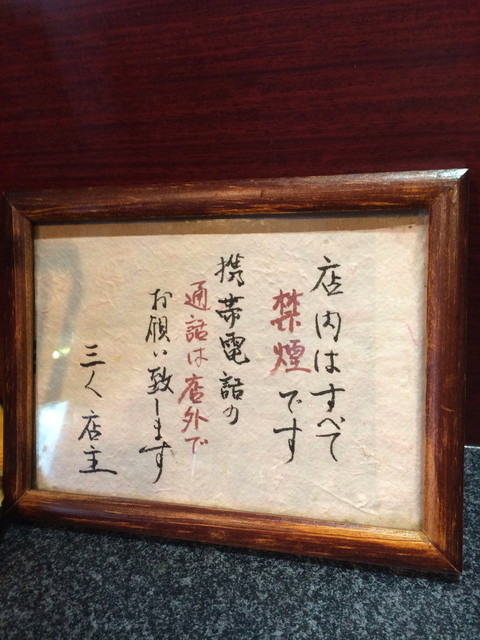 店内はすべて
禁煙です
携帯電話の
通話は店外で
お願い致します
三く店主